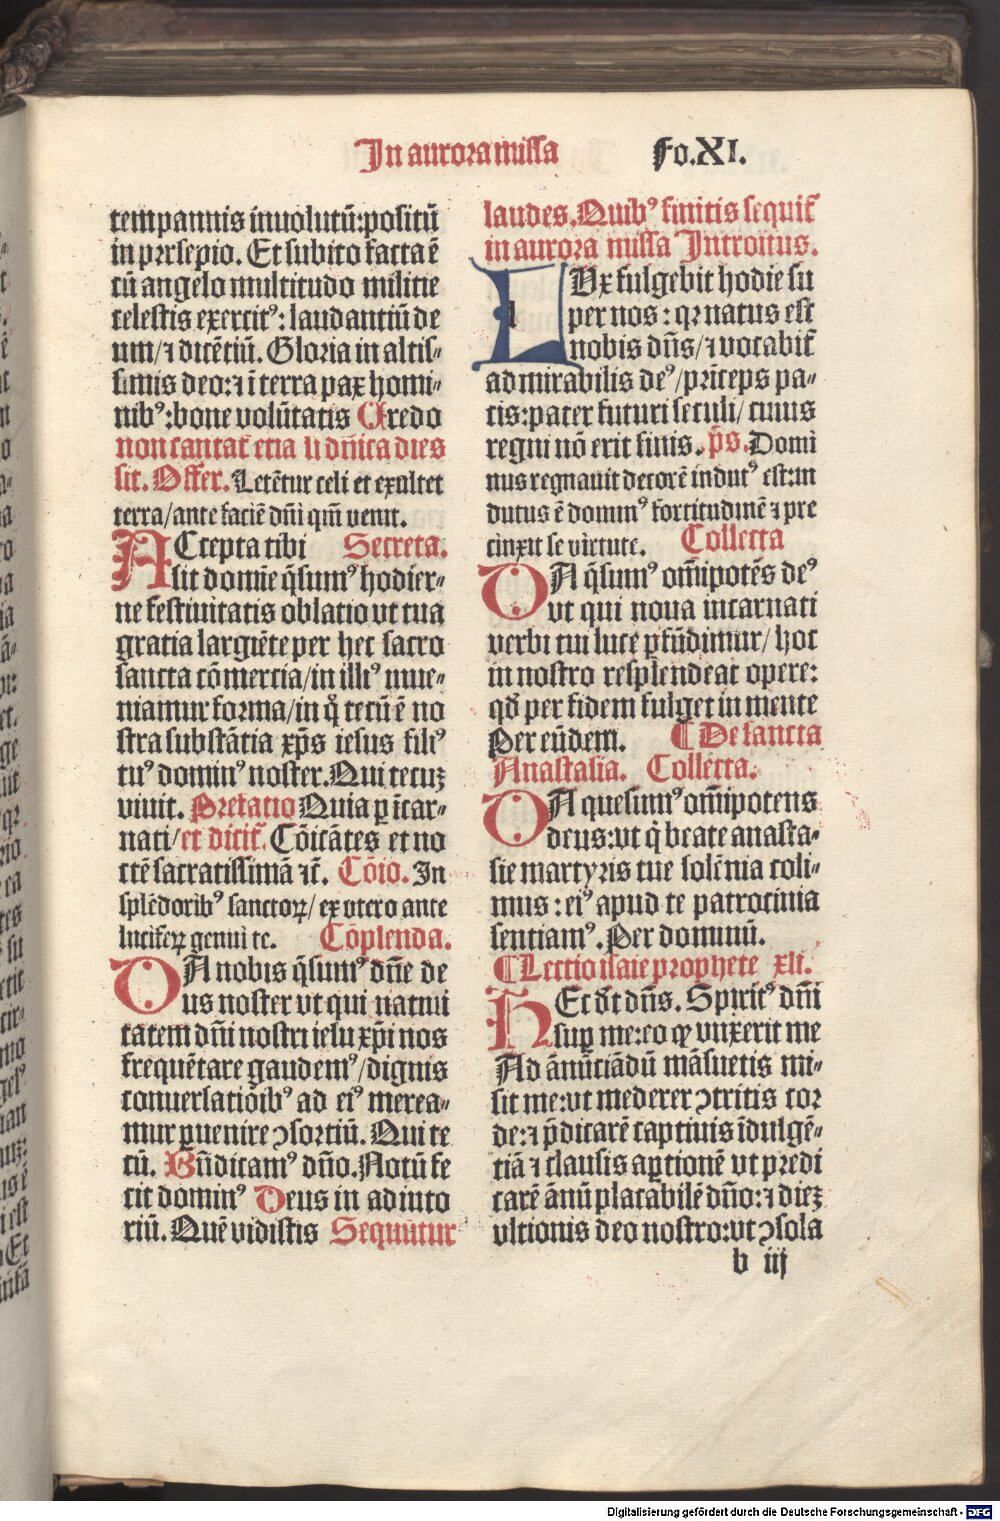 In aurora missa Fo.XI.
tem pannis inuolutū:positū
in presepio. Et subito facta ē
cū angelo multitudo militie
celestis exercitꝰ: laudantiū de
um/⁊ dicētiū. Gloria in altis-
simis deo:⁊ ī terra pax homi-
nibꝰ:bone volūtatis Credo
non cantat̄ etiā si dn̄ica dies
sit. Offer. Letētur celi et exultet
terra/ante faciē dn̄i qm̄ venit.
ACcepta tibi Secreta.
sit domīe q̄sumꝰ hodier-
ne festiuitatis oblatio vt tua
gratia largiēte per hec sacro
sancta cōmercia/in illiꝰ inue-
niamur forma/in q̄ tecū ē no
stra substātia xp̄s iesus filiꝰ
tuꝰ dominꝰ noster.Qui tecuꝫ
viuit. Prefatio Quia ꝑ īcar-
nati/et dicit̄. Cōicātes et no
ctē sacratissimā ⁊c̄. Cōio. In
splēdoribꝰ sanctoꝝ/ex vtero ante
luciferꝝ genui te. Cōplenda.
DA nobis q̄sumꝰ dn̄e de
us noster vt qui natiui
tatem dn̄i nostri iesu xp̄i nos
frequētare gaudemꝰ/dignis
conuersatiōibꝰ ad eiꝰ merea-
mur ꝑuenire ↄsortiū. Qui te
cū. Bn̄dicamꝰ dn̄o.Notū fe
cit dominꝰ Deus in adiuto
riū. Quē vidistis Sequūtur
laudes.Quibꝰ finitis sequit̄
in aurora missa Introitus.
LUx fulgebit hodie su
per nos: qꝛ natus est
nobis dn̄s/⁊ vocabit̄
admirabilis deꝰ/prīceps pa-
cis:pater futuri seculi/cuius
regni nō erit finis. p̄s. Domi
nus regnauit decorē indutꝰ est:in
dutus ē dominꝰ fortitudinē ⁊ pre
cinxit se virtute. Collecta
DA q̄sumꝰ om̄ipotēs deꝰ
vt qui noua incarnati
verbi tui luce ꝑfūdimur/hoc
in nostro resplendeat opere:
qd̄ per fidem fulget in mente
Per eūdem. ¶ De sancta
Anastasia. Collecta.
DA quesumꝰ om̄ipotens
deus:vt q̄ beate anasta-
sie martyris tue solēnia coli-
mus:eiꝰ apud te patrocinia
sentiamꝰ. Per dominū.
¶ Lectio isaie prophete xli.
HEc dt̄ dn̄s. Spiritꝰ dn̄i
suꝑ me:eo ꝙ vnxerit me
Ad ānūciādū māsuetis mi-
sit me:vt mederer ↄtritis cor
de:⁊ p̄dicarē captiuis īdulgē-
tiā ⁊ clausis aꝑtionē vt predi
carē ānū placabilē dn̄o:⁊ dieꝫ
vltionis deo nostro:vt ↄsola
b iij
Digitalisierung gefördert durch die Deutsche Forschungsgemeinschaft - DFG